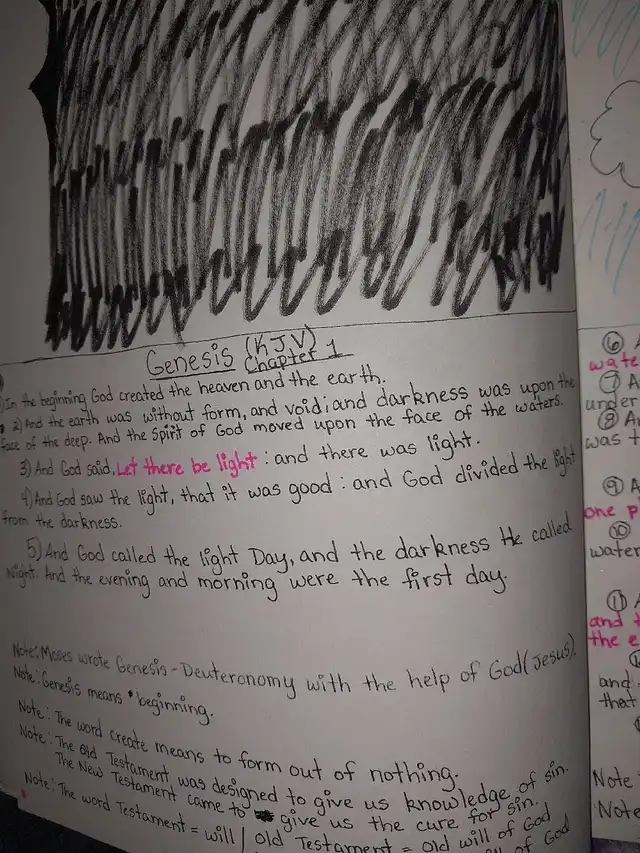 Genesis (KJV)
Chapter 1
1) In the beginning God created the heaven and the earth.
2) And the earth was without form, and void; and darkness was upon the
face of the deep. And the Spirit of God moved upon the face of the waters.
3) And God said, Let there be light: and there was light.
4) And God saw the light, that it was good: and God divided the light
from the darkness.
5) And God called the light Day, and the darkness He called
Night. And the evening and morning were the first day.
Note: Moses wrote Genesis - Deuteronomy with the help of God (Jesus).
Note: Genesis means beginning.
Note: The word create means to form out of nothing.
Note: The Old Testament was designed to give us knowledge of sin.
The New Testament came to give us the cure for sin.
Note: The word Testament = will / old Testament = old will of God
of God
6
wate
7 A
under
8
was t
9 A
one p
10
water
11
and t
the e
and
that
Note
Note